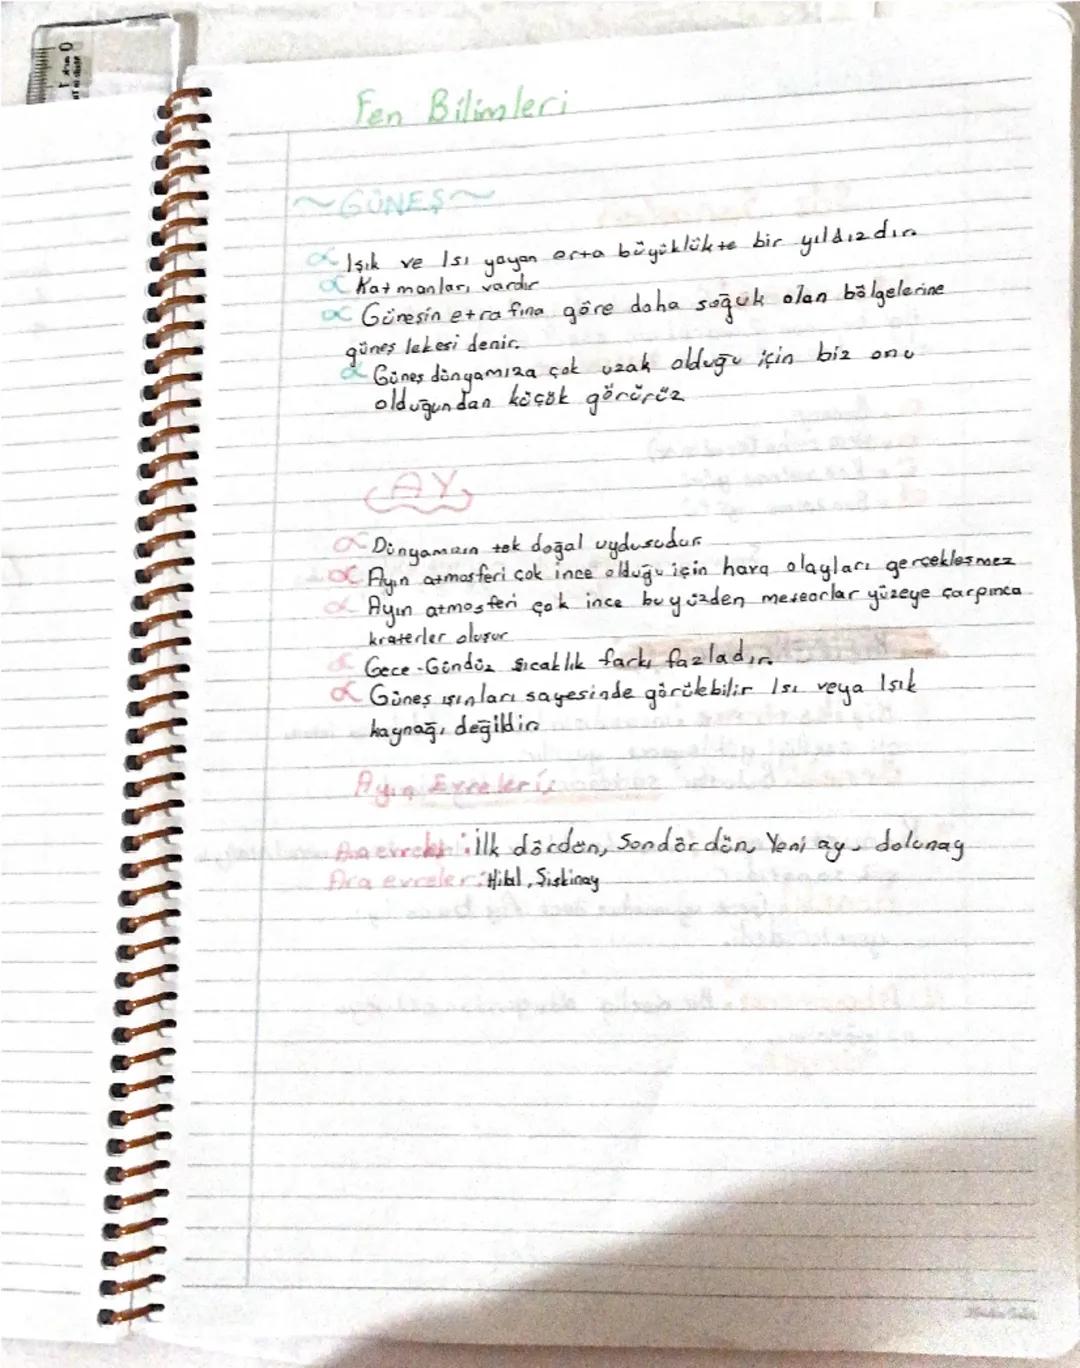 Fen Bilimleri
~GÜNEŞ~
Işık ve Isı yayan orta büyüklükte bir yıldızdır.
Katmanları vardır
Güneşin etrafına göre daha soğuk olan bölgelerine
güneş lekesi denir.
Güneş dünyamıza çok uzak olduğu için biz onu
olduğundan küçük görürüz
AY
Dünyamızın tek doğal uydusudur
Ayın atmosferi çok ince olduğu için hava olayları gerçekleşmez
Ayın atmosferi çok ince bu yüzden meteorlar yüzeye çarpınca
kraterler oluşur
Gece-Gündüz sıcaklık farkı fazladır.
Güneş ışınları sayesinde görülebilir Isı veya Işık
kaynağı değildir.
Ayın Evreleri:
: İlk dördün, Sondördün, Yeni ay, dolunay
Ara evreler: Hilal, Şişkinay